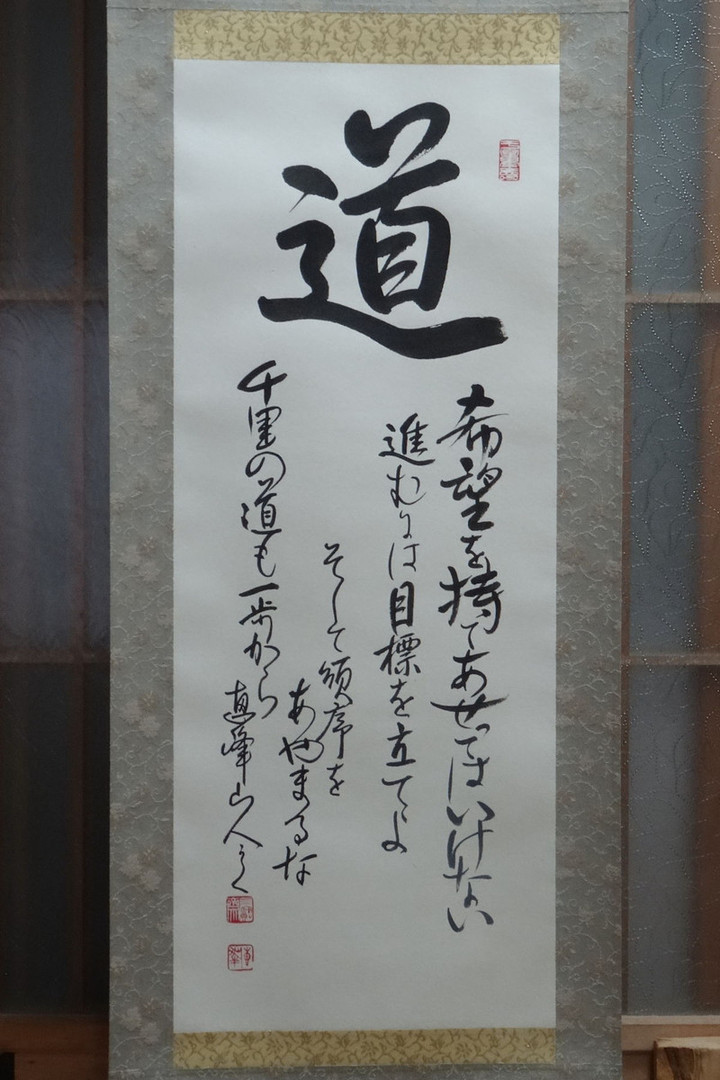 道
希望を持てあせってはいけない
進むには目標を立てよ
そして順序を
あやまるな
千里の道も一歩から
恵峰山人